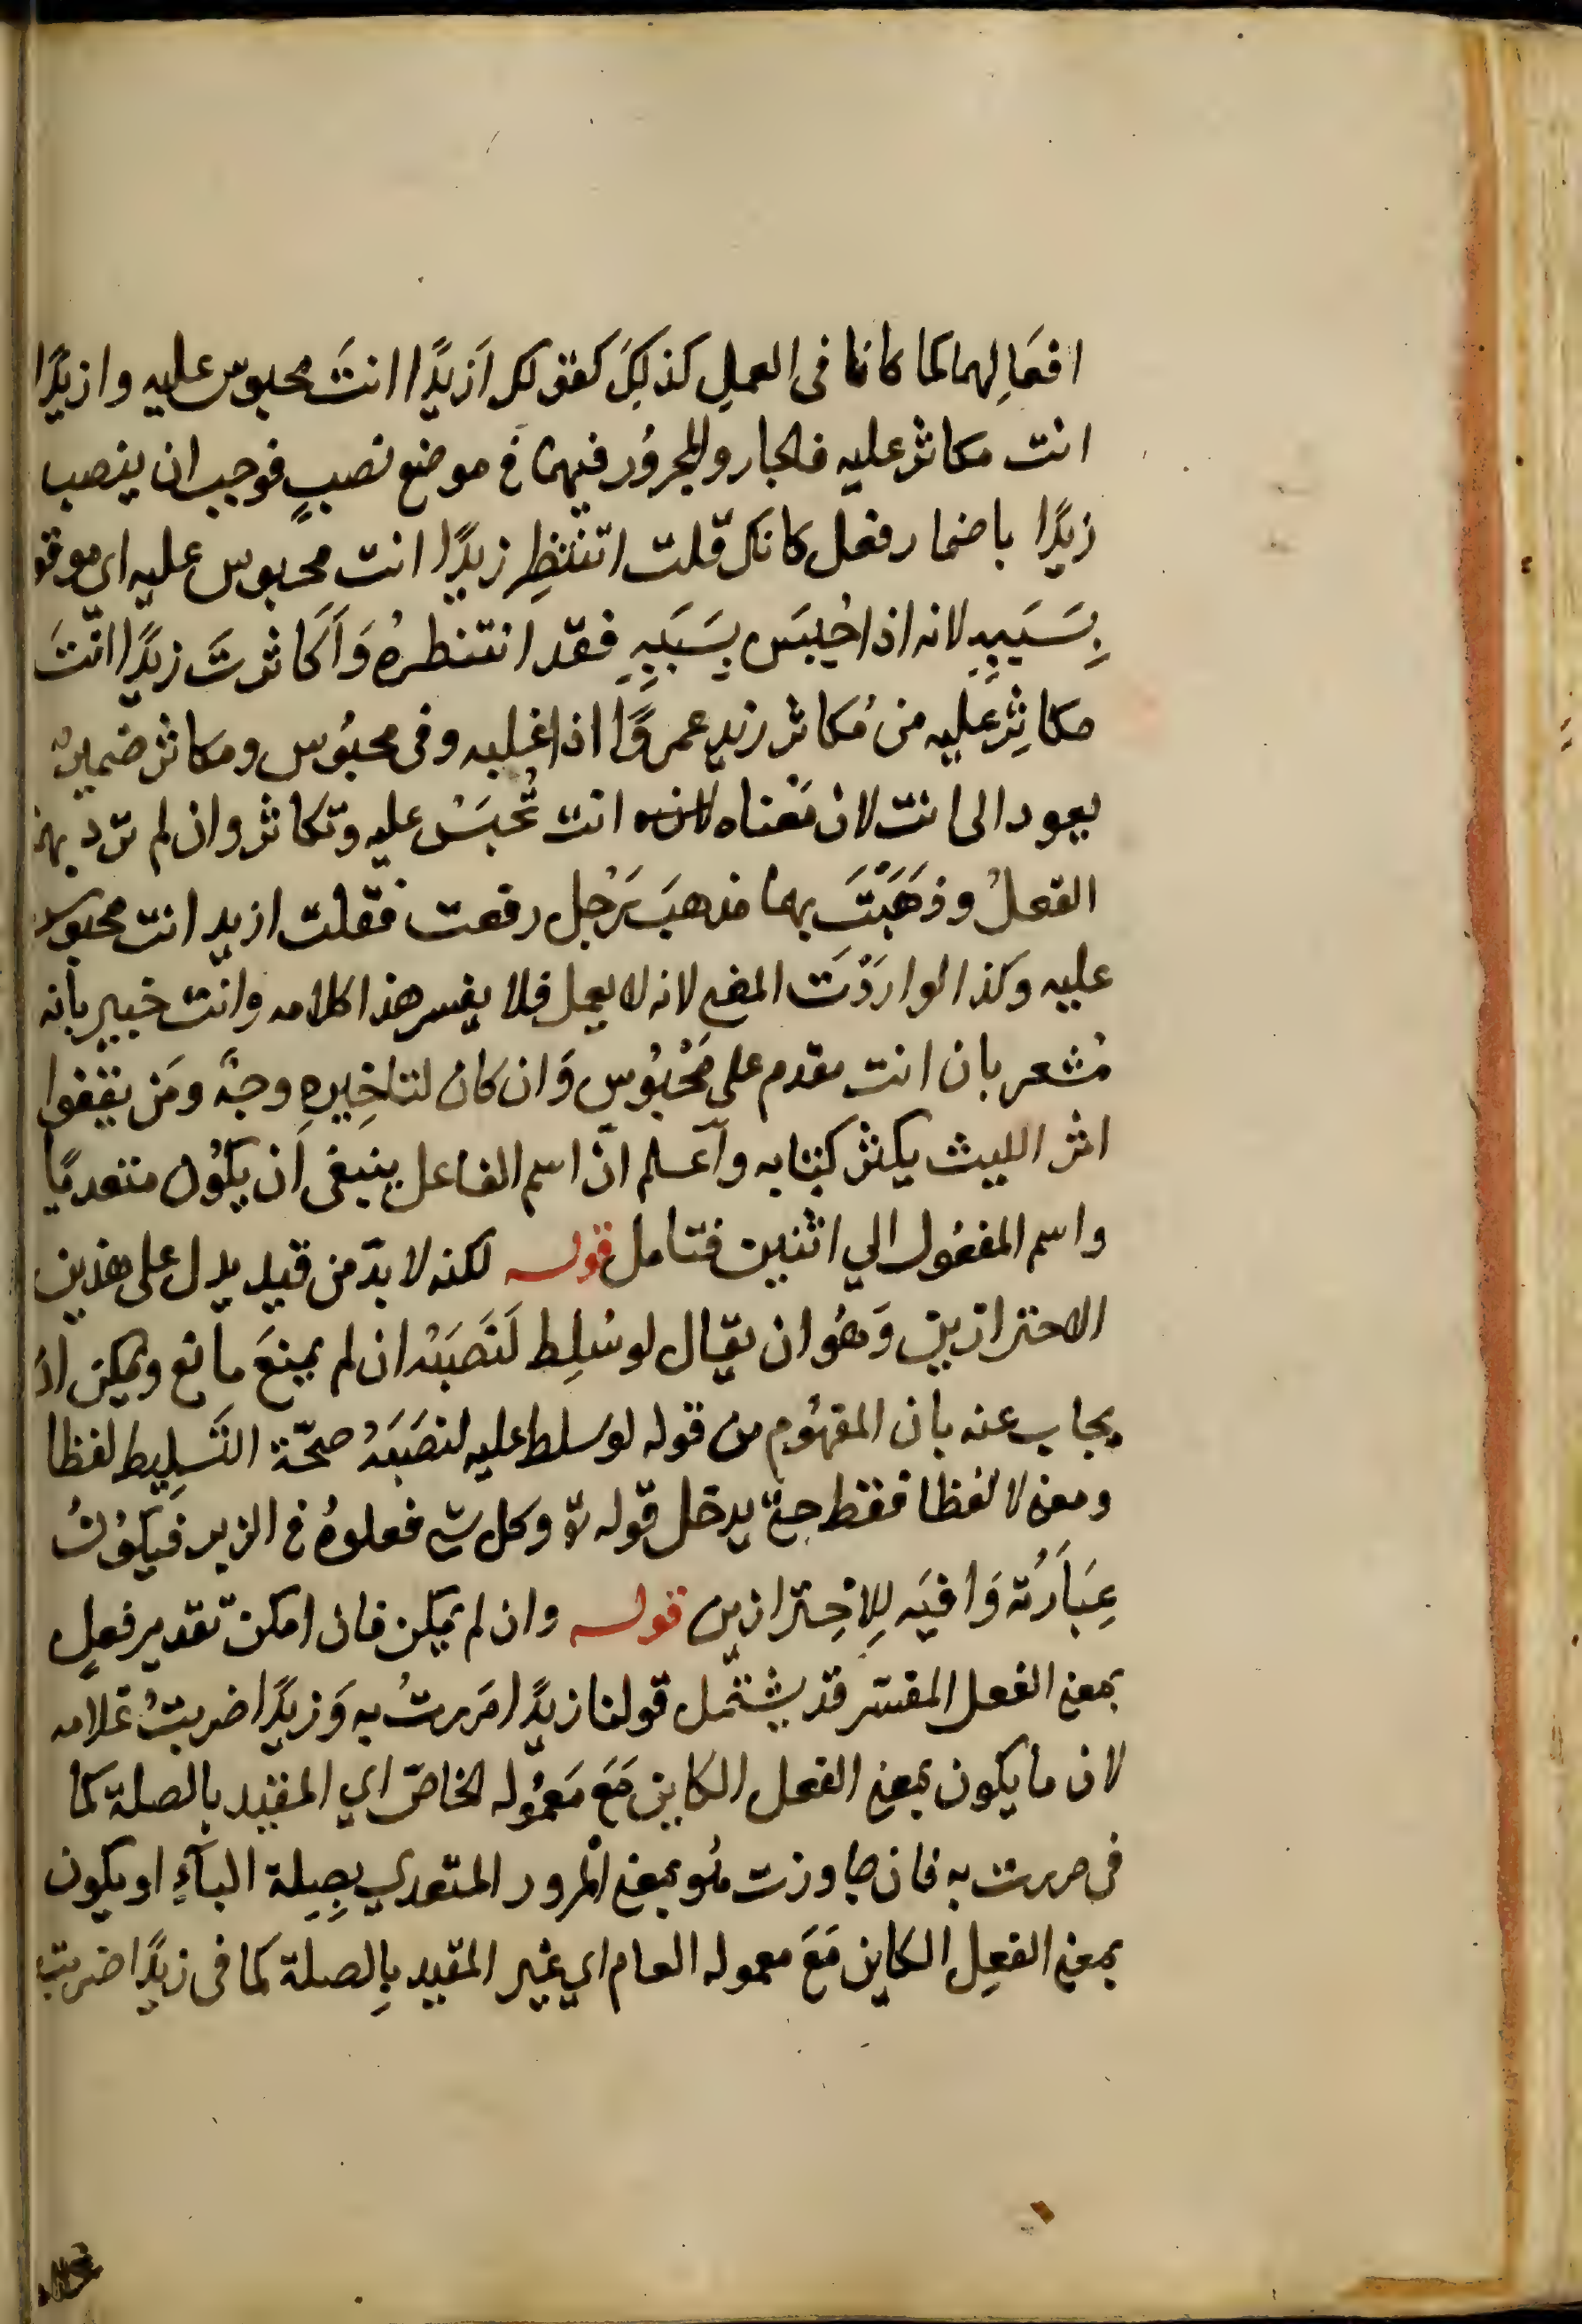 افعَالِهما لما كانا فى العملِ كذلكَ كقولك اَزيدًا انتَ محبوس عليه وازيدًا
انت مكاثر عليه فالجار والمجرُور فيهما فى موضع نصبٍ فوجب ان ينصب
زيدًا باضمار فعل كانك قلت اتنتظِر زيدًا انت محبوس عليه اى موقو
بِسَبَبِهِ لانه اذا حُبِسَ بِسَبَبِهِ فقد انتنظرهُ وَاَكَاثرتَ زيدًا انتَ
مكاثِرٌ عليه من مُكاثر زيد عمروًا اذا غلبه وفى محبُوس ومكاثر ضميرٌ
يعود الى انت لان مَعْناه انت تُحبَسُ عليه وتكاثر وان لم ترد بهما
الفعلُ وذهَبْتَ بهما مذهبَ رَجُل رفعت فقلت ازيد انت محبوس
عليه وكذا لو اردْتَ المضى لانه لا يعمل فلا يفسر هذا كلامه وانت خبير بانه
مُشعر بان انت مقدم على مَحْبُوس وَان كان لتاخِيرِهِ وجهٌ ومَن يقفوا
اثر الليث يكثر كتابه وآعلم انّ اسم الفاعل ينبغى اَن يكوُن متعديًا
واسم المفعُول الي اثنين فتامل قوله لكنه لا بدّ من قيد يدل على هذين
الاحترازين وَهُو ان يقال لو سُلِط لَنَصَبَهُ ان لم يمنعَ مانع ويمكن انْ
يجاب عنه بان المفهُوم من قوله لو سلط عليه لنصَبَهُ صحّة التَسلِيط لفظا
ومعنى لا لفظا فقط حتى يدخل قوله تع وكل شى فعلوهُ فى الزبر فيكوُنُ
عِبَارَته وَافيَه لِلاحِترازين قوله وان لم يمكن فان امكن تقدير فعلٍ
بمعنى الفعل المفسّر قد يشتمل قولنا زيدًا مَررتُ به وَزيدًا ضربتُ غلامه
لان ما يكون بمعنى الفعل الكاين مَعَ مَعمُوله الخاصّ اي المقيد بالصلة كما
فى مررت به فان جاوزت هُو بمعنى المرور المتعدي بِصِلة البآءِ او يكون
بمعنى الفعِل الكاين مَعَ معموله العام اي غير المقيد بِالصلة كما فى زيدًا ضربت